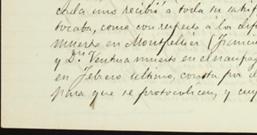 cada uno recibió a toda su satisf
tocaba, como con respecto á los dif
muerto en Montpellier (Francia
y Dn. Ventura muerto en el naufrag
en Febrero último, consta por d
para que se protocolicen, y cuy